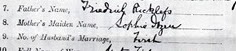 7. Father's Name, Fredrick Rickleffs
8. Mother's Maiden Name, Sophie
9. No. of Husband's Marriage, First
10.